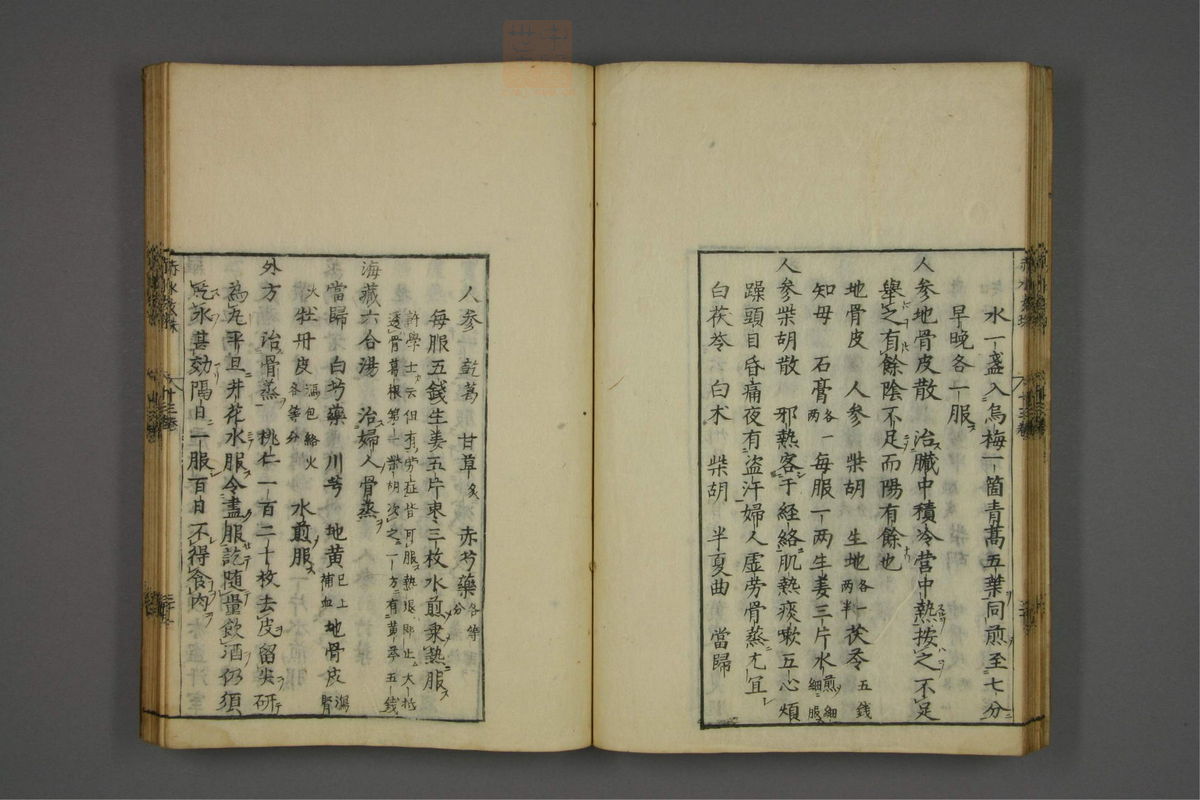 水一盞入烏梅一箇青蒿五葉同煎至七分
早晚各一服
人參地骨皮散　治臟中積冷营中熱按之不足
舉之有餘陰不足而陽有餘也
地骨皮　人參　柴胡　生地各一兩半　茯苓五錢
知母　石膏各一兩　每服一两生姜三片水煎細細服
人參柴胡散　邪熱客于経絡肌熱痰嗽五心煩
躁頭目昏痛夜有盜汗婦人虛劳骨蒸尤宜
白茯苓　白术　柴胡　半夏曲　當歸
人參　乾葛　甘草炙　赤芍藥各等分
每服五錢生姜五片枣三枚水煎衆熱服
許學士云但有劳症皆可服熱退即止大抵
透骨葛根第一柴胡次之一方有黄芩五錢
海藏六合湯　治婦人骨蒸
當歸　白芍藥　川芎　地黄已上補血　地骨皮瀉腎
火　牡丹皮瀉包絡火各等分　水煎服
外方　治骨蒸　桃仁一百二十枚去皮留尖研
為丸平旦井花水服令盡服訖随量飲酒仍須
喫水甚効隔日一服百日不得食肉